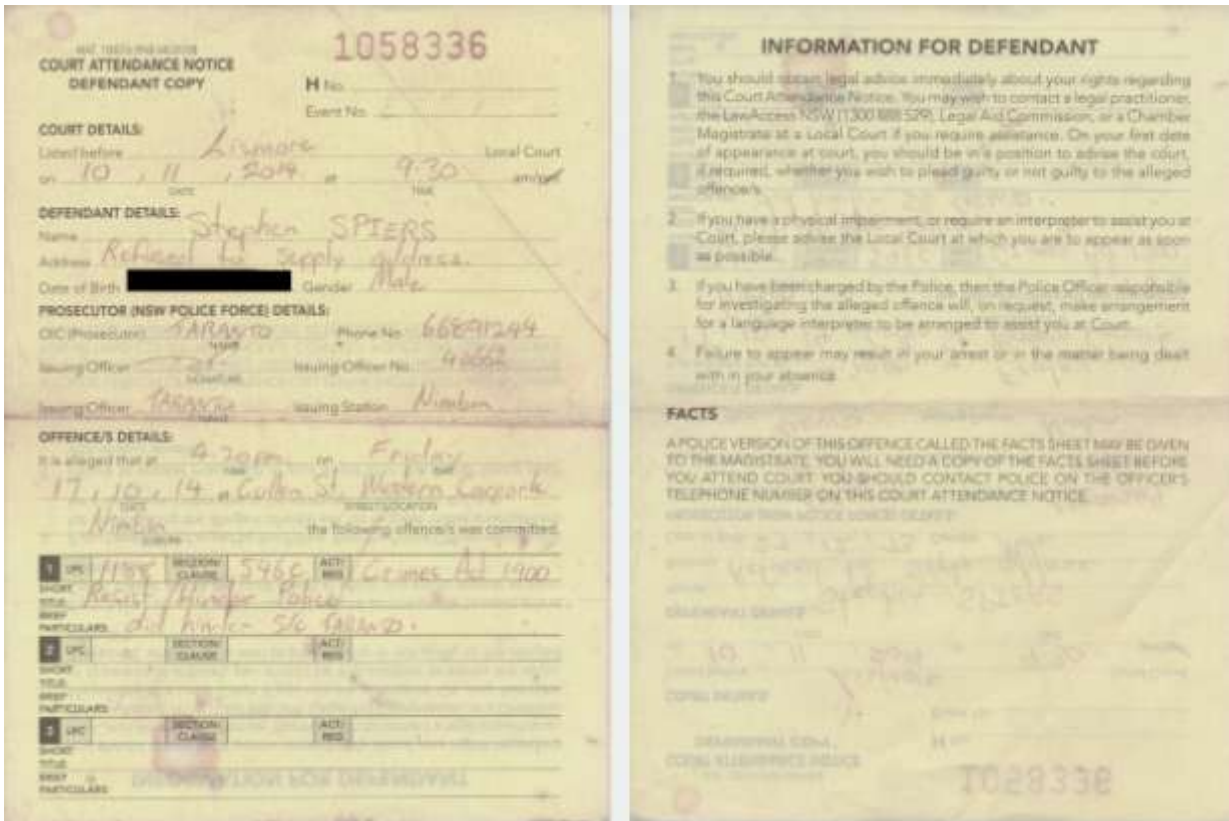 1058336
COURT ATTENDANCE NOTICE
DEFENDANT COPY
H No.
Event No.
COURT DETAILS:
Listed before Lismore Local Court
on 10 / 11 / 2014 at 9.30 am/pm
DATE TIME
DEFENDANT DETAILS:
Name Stephen SPIERS
Address Refused to supply address.
Date of Birth Gender Male
PROSECUTOR (NSW POLICE FORCE) DETAILS:
OIC (Prosecutor) TARANTO Phone No. 66891244
NAME
Issuing Officer Issuing Officer No.
SIGNATURE
Issuing Officer TARANTO Issuing Station Nimbin
NAME
OFFENCE/S DETAILS:
It is alleged that at on Fryday
TIME DAY
17 / 10 / 14 at Cullen St, Western Carpark
DATE STREET/LOCATION
Nimbin the following offence/s was committed.
SUBURB
1 LPC SECTION/CLAUSE 546C ACT/REG Crimes Act 1900
SHORT TITLE Resist / Hinder Police
BRIEF PARTICULARS did hinder S/C TARANTO.
2 LPC SECTION/CLAUSE ACT/REG
SHORT TITLE
BRIEF PARTICULARS
3 LPC SECTION/CLAUSE ACT/REG
SHORT TITLE
BRIEF PARTICULARS
INFORMATION FOR DEFENDANT
1. You should obtain legal advice immediately about your rights regarding
this Court Attendance Notice. You may wish to contact a legal practitioner,
the LawAccess NSW (1300 888 529), Legal Aid Commission, or a Chamber
Magistrate at a Local Court if you require assistance. On your first date
of appearance at court, you should be in a position to advise the court,
if required, whether you wish to plead guilty or not guilty to the alleged
offence/s.
2. If you have a physical impairment, or require an interpreter to assist you at
Court, please advise the Local Court at which you are to appear as soon
as possible.
3. If you have been charged by the Police, then the Police Officer responsible
for investigating the alleged offence will, on request, make arrangement
for a language interpreter to be arranged to assist you at Court.
4. Failure to appear may result in your arrest or in the matter being dealt
with in your absence.
FACTS
A POLICE VERSION OF THIS OFFENCE CALLED THE FACTS SHEET MAY BE GIVEN
TO THE MAGISTRATE. YOU WILL NEED A COPY OF THE FACTS SHEET BEFORE
YOU ATTEND COURT. YOU SHOULD CONTACT POLICE ON THE OFFICER'S
TELEPHONE NUMBER ON THIS COURT ATTENDANCE NOTICE.